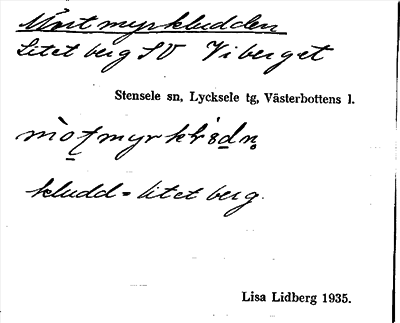 Mortmyrkludden
Litet berg SV Viberget
Stensele sn, Lycksele tg, Västerbottens l.
kludd = litet berg.
Lisa Lidberg 1935.